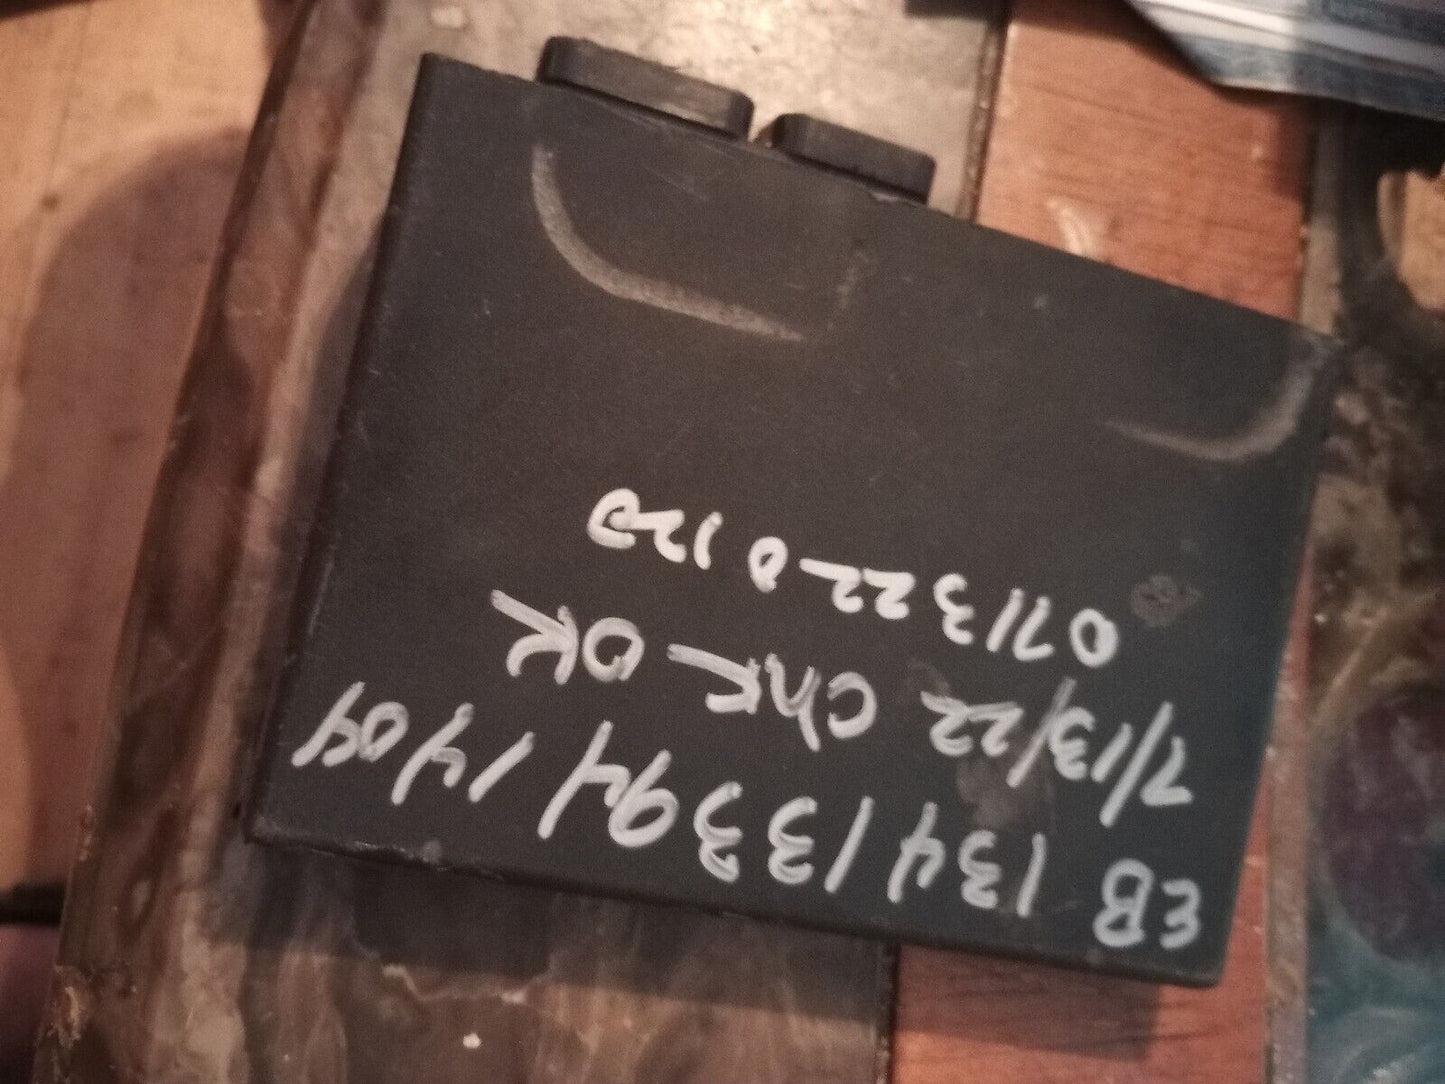 EB 134133941404
7/13/22 ChK OK
071322-0120